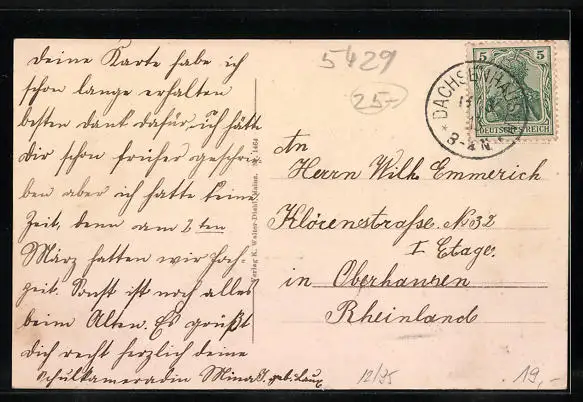 Deine Karte habe ich
schon lange erhalten
besten dank dafür, ich hätte
Dir schon früher geschrie-
ben aber ich hatte keine
Zeit, denn am 2 ten
März hatten wir Hoch-
zeit. Sonst ist noch alles
beim Alten. Es grüßt
Dich recht herzlich deine
Schulkameradin Mina J. geb. Laux
Verlag K. Walter-Diehl, Mainz. 1464
5429
25-
5 5
DEUTSCHES REICH
DACHSENHAUSEN
8-9 N
An
Herrn Wilh. Emmerich
Klörenstrafse. No 32
I Etage.
in Oberhausen
Rheinland
12/95
19,-